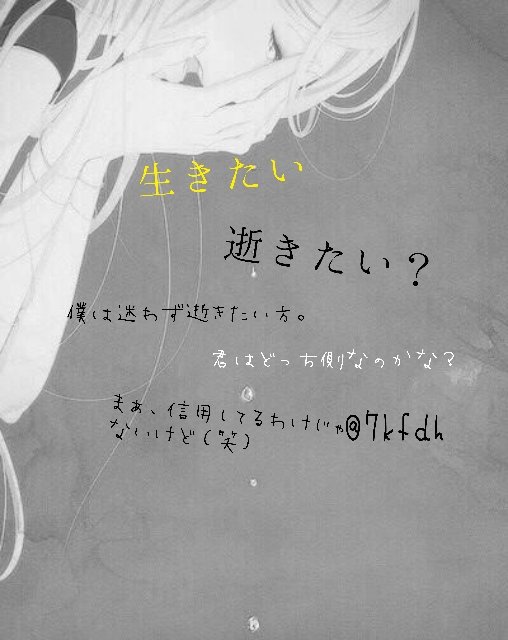 生きたい
逝きたい？
僕は迷わず逝きたい方。
君はどっち側なのかな？
まぁ、信用してるわけじゃ
ないけど（笑）
@7kfdh